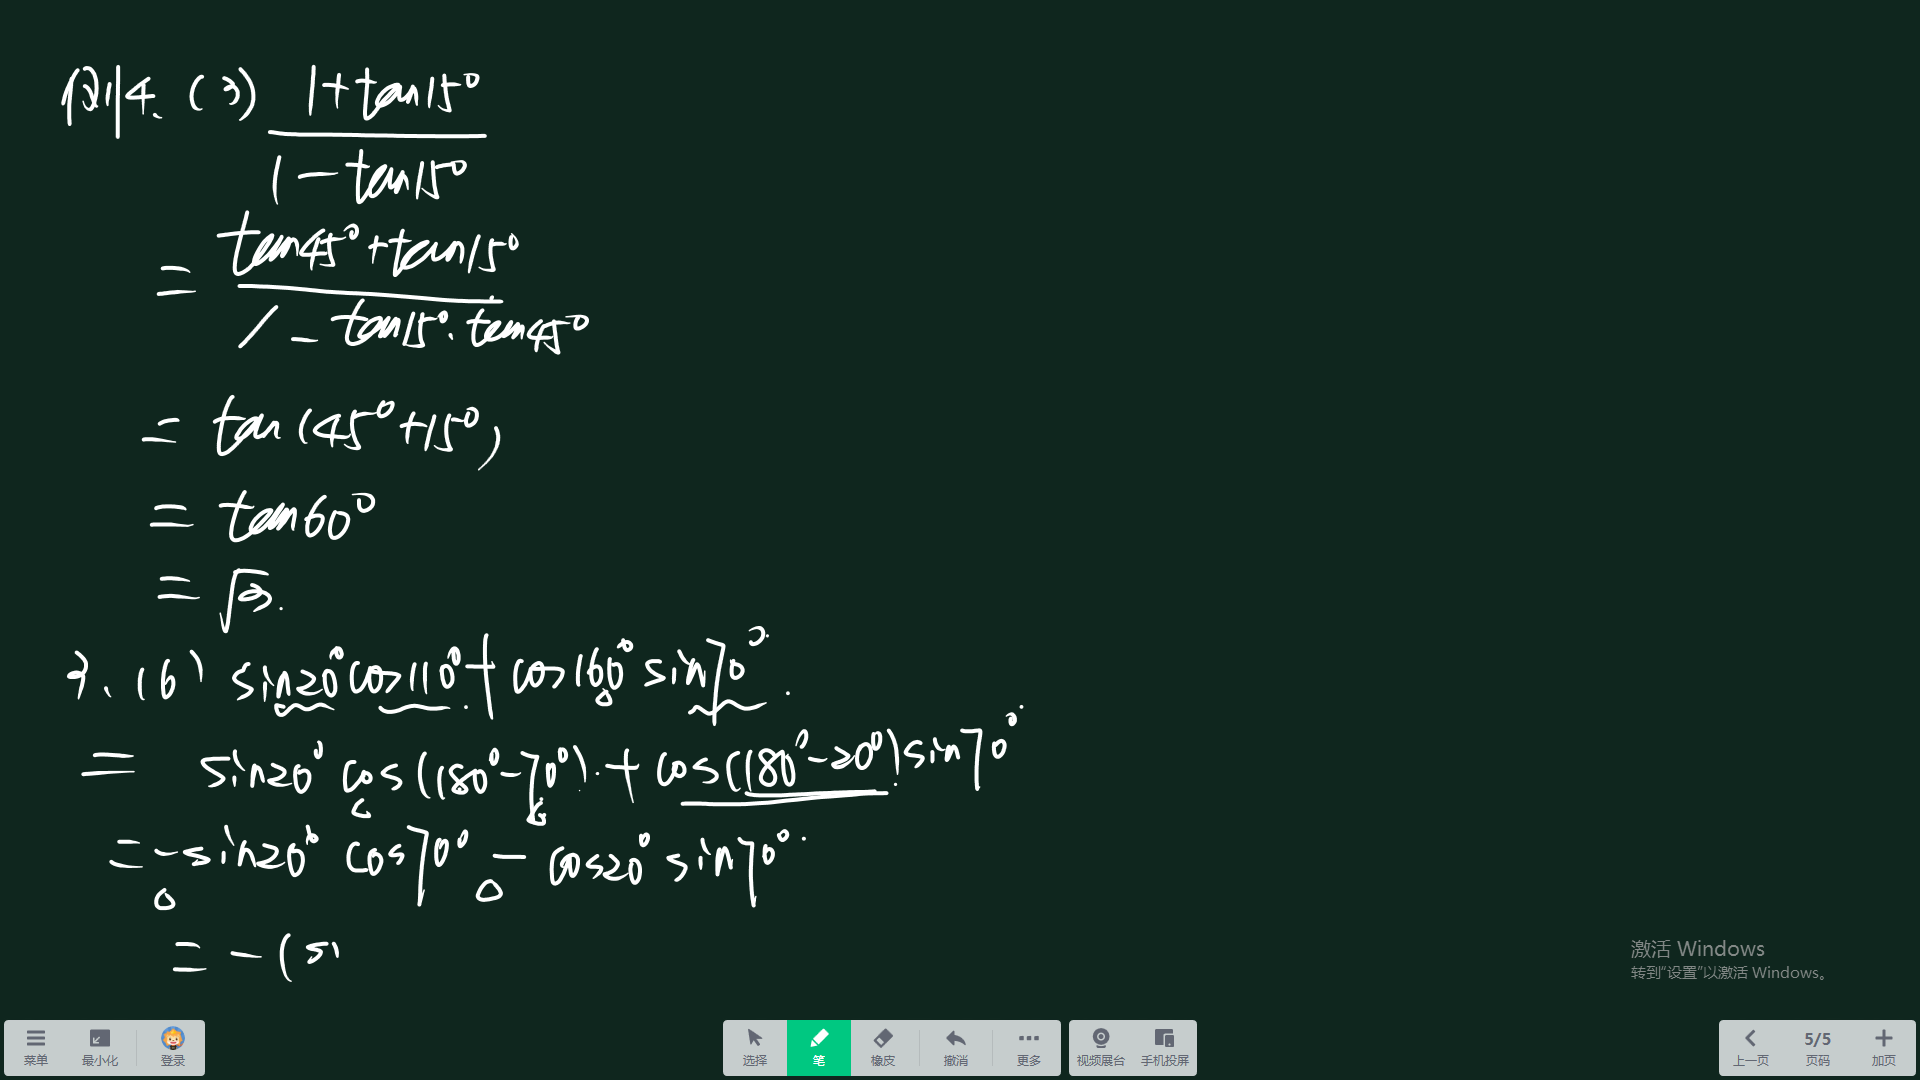 例4.(3) 1+tan15°
1-tan15°
= tan45°+tan15°
1-tan15°·tan45°
= tan(45°+15°)
= tan60°
= √3.
3.(6) sin20°cos110°+cos160°sin70°.
= sin20°cos(180°-70°)+cos(180°-20°)sin70°
=-sin20°cos70°-cos20°sin70°.
= -(si
激活 Windows
转到"设置"以激活 Windows。
菜单 最小化 登录 选择 笔 橡皮 撤消 更多 视频展台 手机投屏 上一页 5/5 页码 加页